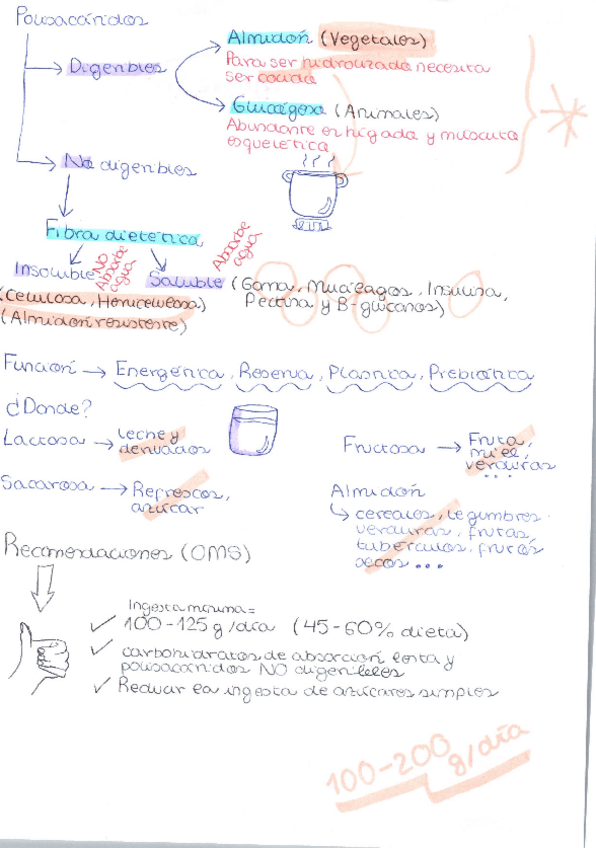 Polisacáridos
Digeribles
Almidón (Vegetales)
Para ser hidrolizada necesita
ser cocida
Glucógeno (Animales)
Abundante en hígado y músculo
esquelético
No digeribles
Fibra dietética
Insoluble
NO
Absorbe
agua
Soluble
Absorbe
agua
(Goma, Mucílagos, Insulina,
Pectina y B-glucanos)
(Celulosa, Hemicelulosa)
(Almidón resistente)
Función → Energética, Reserva, Plástica, Prebiótica
¿Donde?
Lactosa → Leche y
derivados
Fructosa → Fruta,
miel,
verduras
...
Sacarosa → Refrescos,
azúcar
Almidón
↳ cereales, legumbres
verduras, frutas,
tuberculos, frutos
secos ...
Recomendaciones (OMS)
Ingesta mínima =
✓ 100-125 g/día (45-60% dieta)
✓ carbohidratos de absorción lenta y
polisacáridos NO digeribles
✓ Reducir la ingesta de azúcares simples
100-200 g/día